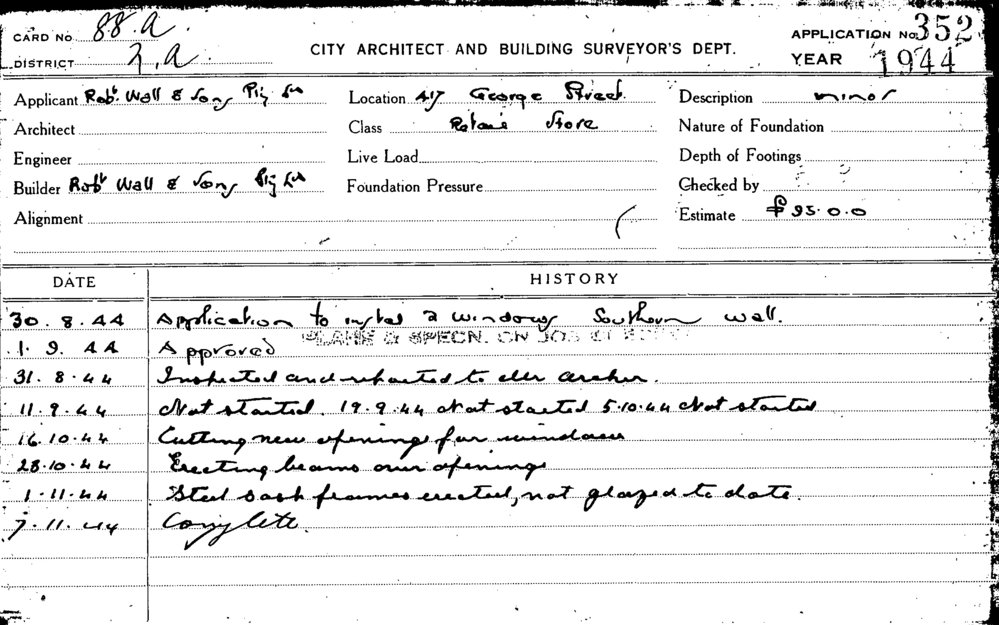 CARD NO. 88.a.
DISTRICT 2.a.
CITY ARCHITECT AND BUILDING SURVEYOR'S DEPT.
APPLICATION No. 352
YEAR 1944
Applicant Robt. Wall & Sons Pty Ltd
Location 417 George Street.
Description minor
Architect
Class Retail Store
Nature of Foundation
Engineer
Live Load
Depth of Footings
Builder Robt Wall & Sons Pty Ltd
Foundation Pressure
Checked by
Alignment
Estimate £95.0.0
DATE HISTORY
30.8.44 Application to instal 2 windows Southern wall.
1.9.44 Approved PLANS & SPECN. ON JOB
31.8.44 Inspected and reported to Mr Archer.
11.9.44 Not started. 19.9.44 Not started 5.10.44 Not started
16.10.44 Cutting new openings for windows
28.10.44 Erecting beams over openings
1.11.44 Steel sash frames erected, not glazed to date.
7.11.44 Complete.